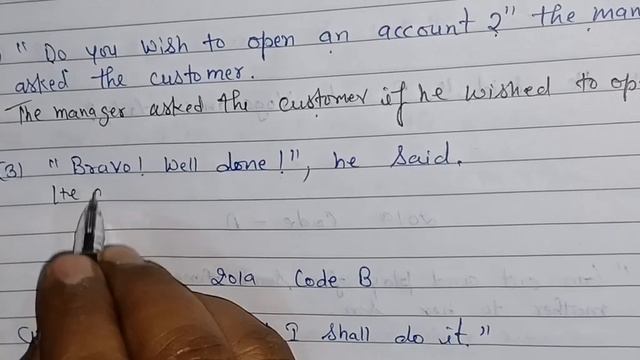 "Do you wish to open an account?" the man
asked the customer.
The manager asked the customer if he wished to op
(3) "Bravo! Well done!", he said.
He
2019 Code B
I shall do it."